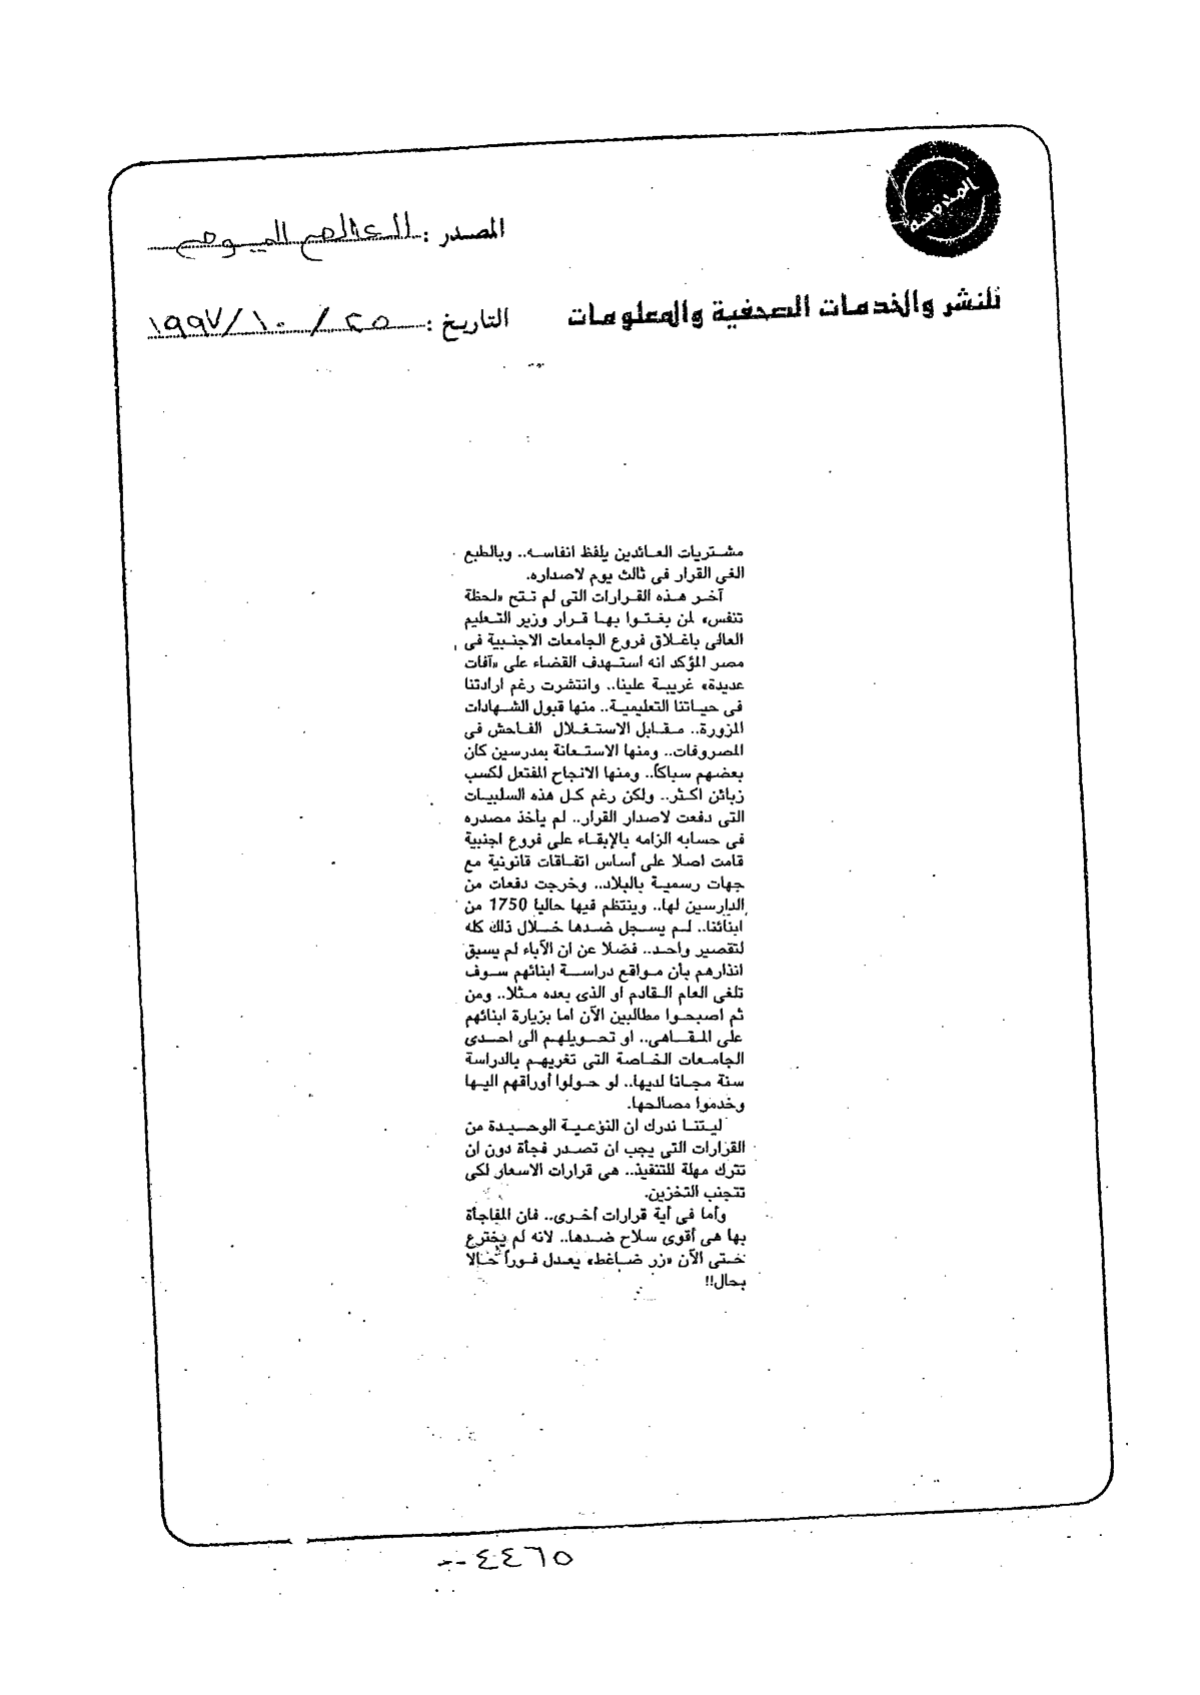 المدوسة
المصدر : العالم اليوم
للنشر والخدمات الصحفية والمعلومات
التاريخ : ٢٥ / ١٠ / ١٩٩٧
مشتريات العائدين يلفظ انفاسه.. وبالطبع
الغى القرار فى ثالث يوم لاصداره.
آخر هذه القرارات التى لم تتح «لحظة
تنفس» لمن بغتوا بها قرار وزير التعليم
العالى باغلاق فروع الجامعات الاجنبية فى
مصر المؤكد انه استهدف القضاء على «آفات
عديدة» غريبة علينا.. وانتشرت رغم ارادتنا
فى حياتنا التعليمية.. منها قبول الشهادات
المزورة.. مقابل الاستغلال الفاحش فى
المصروفات.. ومنها الاستعانة بمدرسين كان
بعضهم سباكاً.. ومنها الانجاح المفتعل لكسب
زبائن اكثر.. ولكن رغم كل هذه السلبيات
التى دفعت لاصدار القرار.. لم يأخذ مصدره
فى حسابه الزامه بالإبقاء على فروع اجنبية
قامت اصلا على أساس اتفاقات قانونية مع
جهات رسمية بالبلاد.. وخرجت دفعات من
الدارسين لها.. وينتظم فيها حاليا 1750 من
ابنائنا.. لم يسجل ضدها خلال ذلك كله
لتقصير واحد.. فضلا عن ان الآباء لم يسبق
انذارهم بأن مواقع دراسة ابنائهم سوف
تلغى العام القادم او الذى بعده مثلا.. ومن
ثم اصبحوا مطالبين الآن اما بزيارة ابنائهم
على المقاهى.. او تحويلهم الى احدى
الجامعات الخاصة التى تغريهم بالدراسة
سنة مجانا لديها.. لو حولوا أوراقهم اليها
وخدموا مصالحها.
ليتنا ندرك ان النوعية الوحيدة من
القرارات التى يجب ان تصدر فجأة دون ان
تترك مهلة للتنفيذ.. هى قرارات الاسعار لكى
تتجنب التخزين.
وأما فى أية قرارات أخرى.. فان المفاجأة
بها هى أقوى سلاح ضدها.. لانه لم يخترع
حتى الآن «زر ضاغط» يعدل فوراً حالا
بحال!!
٤٤٦٥